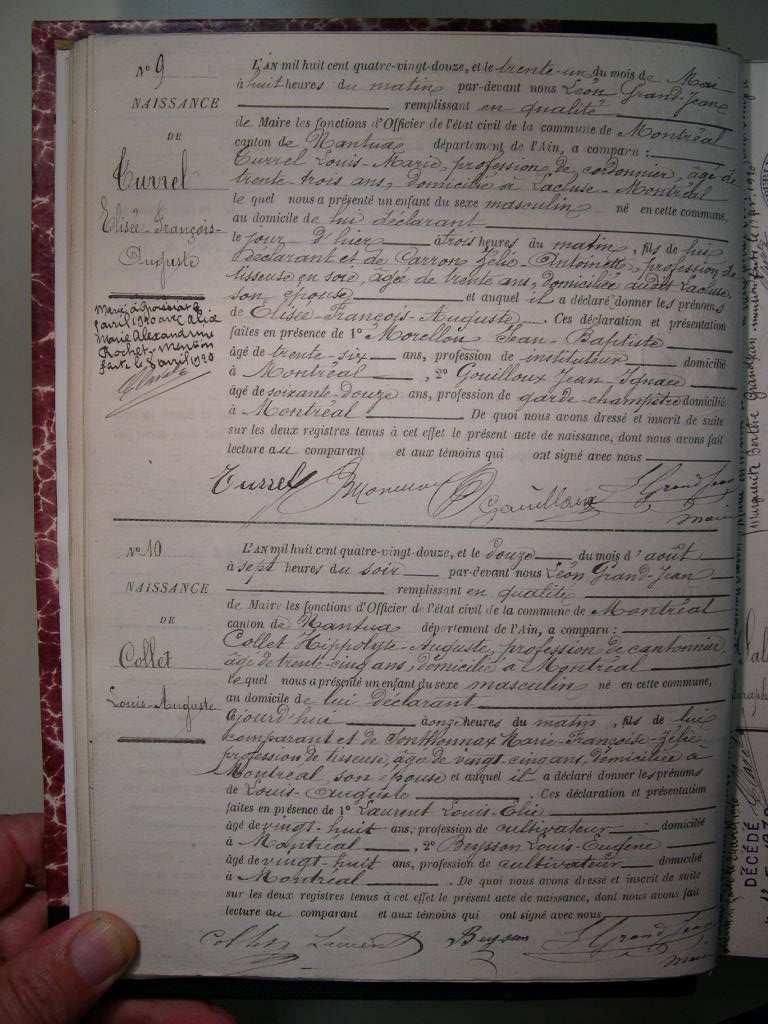 N° 9
NAISSANCE
DE
Turrel
Elisée-François-
Auguste
Marié à
avril 1920 avec Alice
Marie Alexandrine
Rochet. Mention
faite le 8 avril 1920
L'AN mil huit cent quatre-vingt-douze, et le trente-un du mois de Mai
à huit heures du matin par-devant nous Léon Grand-Jean
remplissant en qualité
de Maire les fonctions d'Officier de l'état civil de la commune de Montréal
canton de Nantua département de l'Ain, a comparu :
Turrel Louis-Marie, profession de cordonnier, âgé de
trente-trois ans, domicilié à Lacluse-Montréal
lequel nous a présenté un enfant du sexe masculin né en cette commune,
au domicile de lui déclarant
le jour d'hier à trois heures du matin, fils de lui
déclarant et de Carron Zélie-Antoinette, profession de
tisseuse en soie, âgée de trente ans, domiciliée audit Lacluse,
son épouse et auquel il a déclaré donner les prénoms
de Elisée-François-Auguste. Ces déclaration et présentation
faites en présence de 1° Morellon Jean-Baptiste
âgé de trente-six ans, profession de instituteur domicilié
à Montréal, 2° Gouilloux Jean-Ignace
âgé de soixante-douze ans, profession de garde-champêtre domicilié
à Montréal. De quoi nous avons dressé et inscrit de suite
sur les deux registres tenus à cet effet le présent acte de naissance, dont nous avons fait
lecture au comparant et aux témoins qui ont signé avec nous
Turrel Gouilloux L. Grand Jean
maire
N° 10
NAISSANCE
DE
Collet
Louis-Auguste
L'AN mil huit cent quatre-vingt-douze, et le douze du mois d'août
à sept heures du soir par-devant nous Léon Grand-Jean
remplissant en qualité
de Maire les fonctions d'Officier de l'état civil de la commune de Montréal
canton de Nantua département de l'Ain, a comparu :
Collet Hippolyte-Auguste, profession de cantonnier,
âgé de trente-cinq ans, domicilié à Montréal
lequel nous a présenté un enfant du sexe masculin né en cette commune,
au domicile de lui déclarant
cejourd'hui à onze heures du matin, fils de lui
comparant et de Sonthonnax Marie-Françoise-Zélie,
profession de tisseuse, âgée de vingt-cinq ans, domiciliée à
Montréal, son épouse et auquel il a déclaré donner les prénoms
de Louis-Auguste. Ces déclaration et présentation
faites en présence de 1° Laurent Louis-Elie
âgé de vingt-huit ans, profession de cultivateur domicilié
à Montréal, 2° Beysson Louis-Eugène
âgé de vingt-huit ans, profession de cultivateur domicilié
à Montréal. De quoi nous avons dressé et inscrit de suite
sur les deux registres tenus à cet effet le présent acte de naissance, dont nous avons fait
lecture au comparant et aux témoins qui ont signé avec nous
Collet Laurent Beysson L. Grand Jean
maire
DÉCÉDÉ